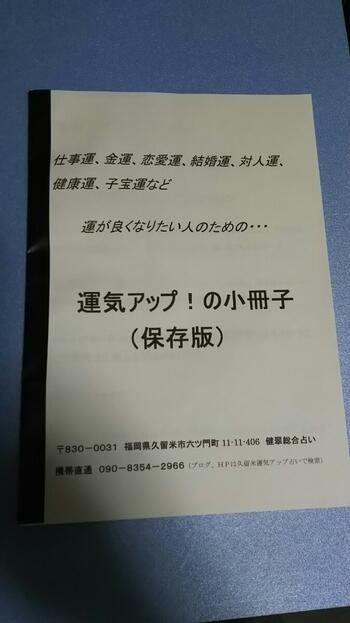 仕事運、金運、恋愛運、結婚運、対人運、
健康運、子宝運など
運が良くなりたい人のための・・・
運気アップ！の小冊子
（保存版）
〒830－0031 福岡県久留米市六ツ門町 11-11-406 健翠総合占い
携帯直通 090－8354－2966（ブログ、ＨＰは久留米運気アップ占いで検索）